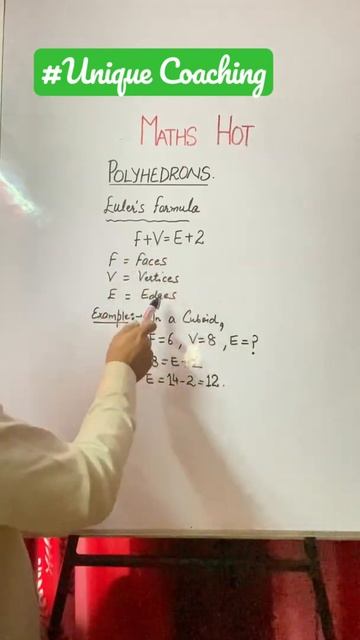 #Unique Coaching
MATHS HOT
POLYHEDRONS.
Euler's formula
F+V=E+2
F = Faces
V = Vertices
E = Edges
Example:- In a Cuboid,
F=6, V=8, E=?
8=E+2
E=14-2=12.